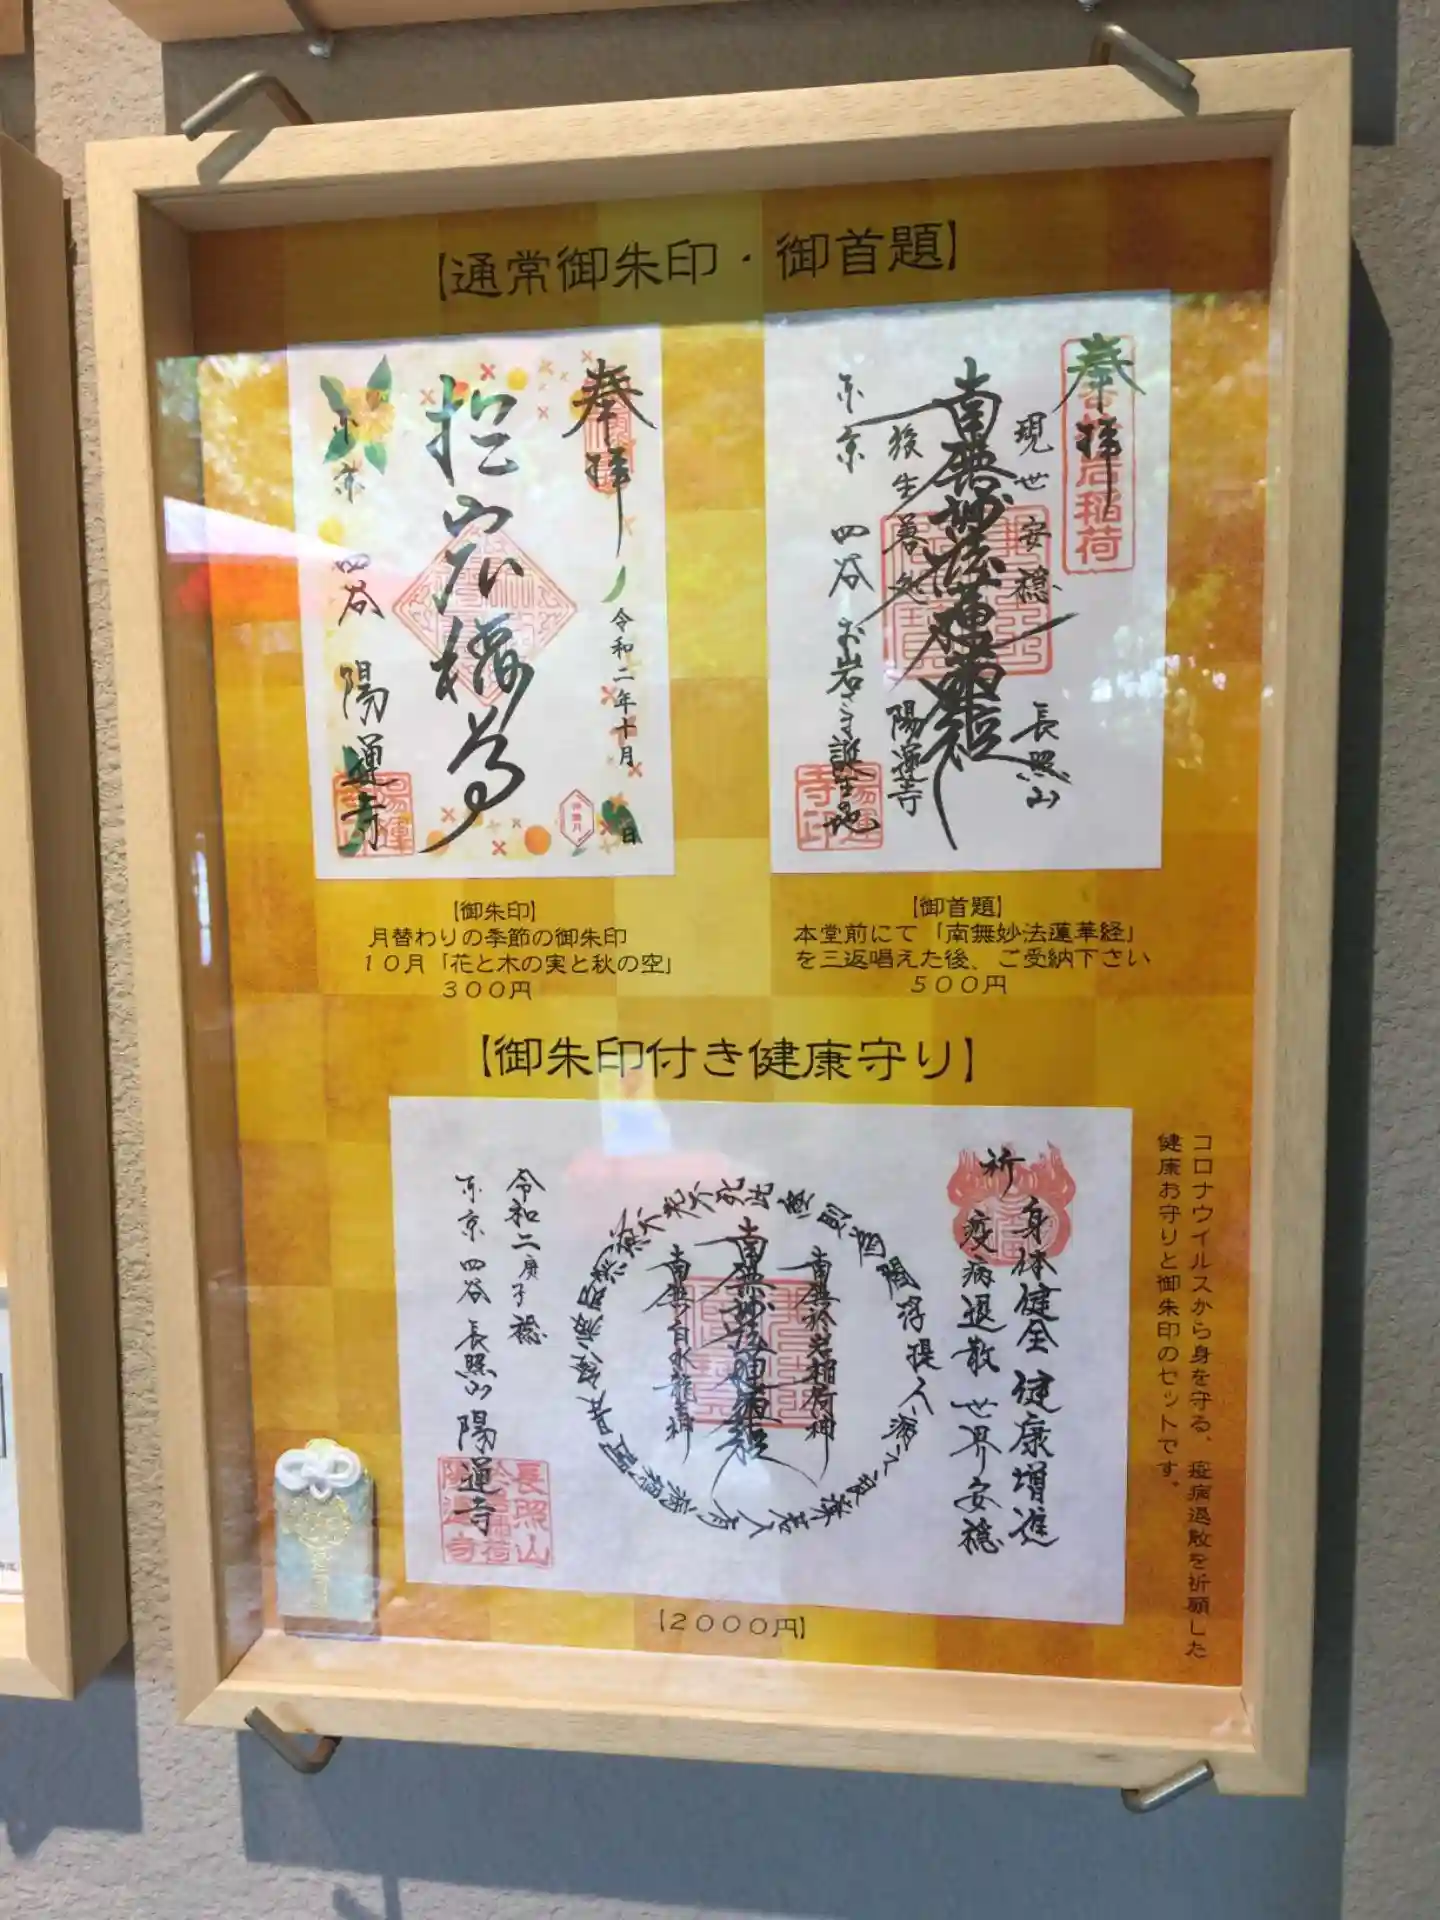 【通常御朱印・御首題】
奉拝
令和二年十月
日
東京
四谷
陽運寺
奉拝
お岩稲荷
現世安穏
長照山
南無妙法蓮華経
後生善処
陽運寺
東京
四谷
お岩さま誕生地
【御朱印】
月替わりの季節の御朱印
10月「花と木の実と秋の空」
300円
【御首題】
本堂前にて「南無妙法蓮華経」
を三返唱えた後、ご受納下さい
500円
【御朱印付き健康守り】
コロナウイルスから身を守る、疫病退散を祈願した
健康お守りと御朱印のセットです。
祈
身体健全 健康増進
疫病退散 世界安穏
南無妙法蓮華経
南無白水龍王神
令和二庚子稔
東京四谷 長照山 陽運寺
【2000円】